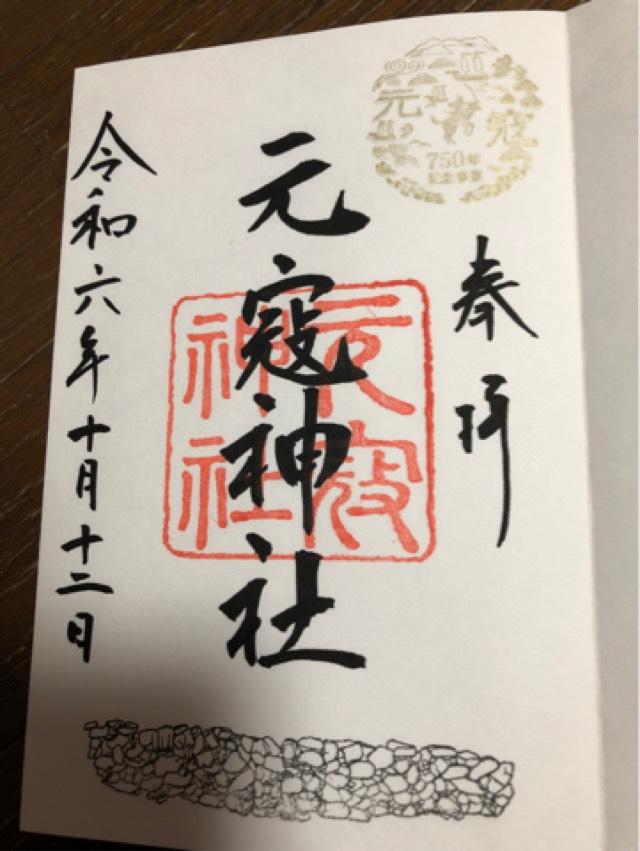 元寇
750年
記念事業
奉拝
元寇神社
元寇
神社
令和六年十月十二日